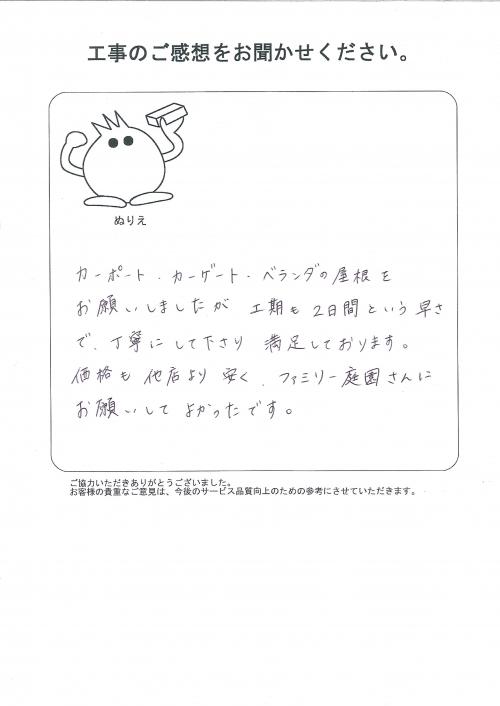 工事のご感想をお聞かせください。
ぬりえ
カーポート・カーゲート・ベランダの屋根を
お願いしましたが 工期も2日間という早さ
で、丁寧にして下さり 満足しております。
価格も他店より安く、ファミリー庭園さんに
お願いしてよかったです。
ご協力いただきありがとうございました。
お客様の貴重なご意見は、今後のサービス品質向上のための参考にさせていただきます。